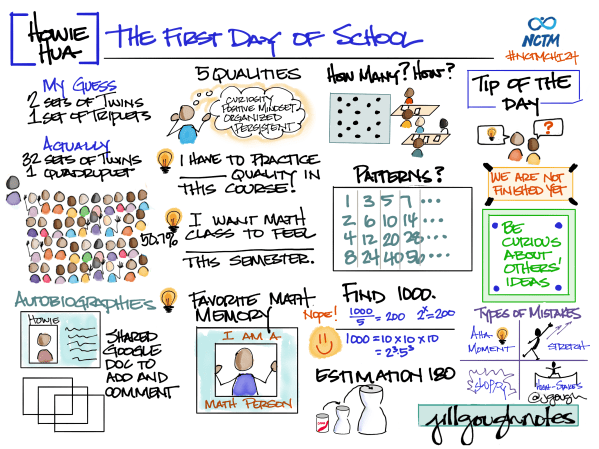 HOWIE
HUA
THE FIRST DAY OF SCHOOL
NCTM
#NCTMCHI24
MY GUESS
2 SETS OF TWINS
1 SET OF TRIPLETS
ACTUALLY
32 SETS OF TWINS
1 QUADRUPLET
50.7%
AUTOBIOGRAPHIES
HOWIE
SHARED
GOOGLE
DOC TO
ADD AND
COMMENT
5 QUALITIES
CURIOSITY
POSITIVE MINDSET
ORGANIZED
PERSISTENT
I HAVE TO PRACTICE
____ QUALITY IN
THIS COURSE!
I WANT MATH
CLASS TO FEEL
____
THIS SEMESTER.
FAVORITE MATH
MEMORY
I AM A
MATH PERSON
HOW MANY? HOW?
PATTERNS?
1 3 5 7 ...
2 6 10 14 ...
4 12 20 28 ...
8 24 40 56 ...
FIND 1000.
NOPE!
1000/5 = 200 2ˣ = 200
1000 = 10 x 10 x 10
= 2³5³
ESTIMATION 180
TIP OF THE
DAY
?
WE ARE NOT
FINISHED YET
BE
CURIOUS
ABOUT
OTHERS'
IDEAS
TYPES OF MISTAKES
AHA-
MOMENT
STRETCH
SLOPPY
HIGH-STAKES
@jgough
jillgoughnotes